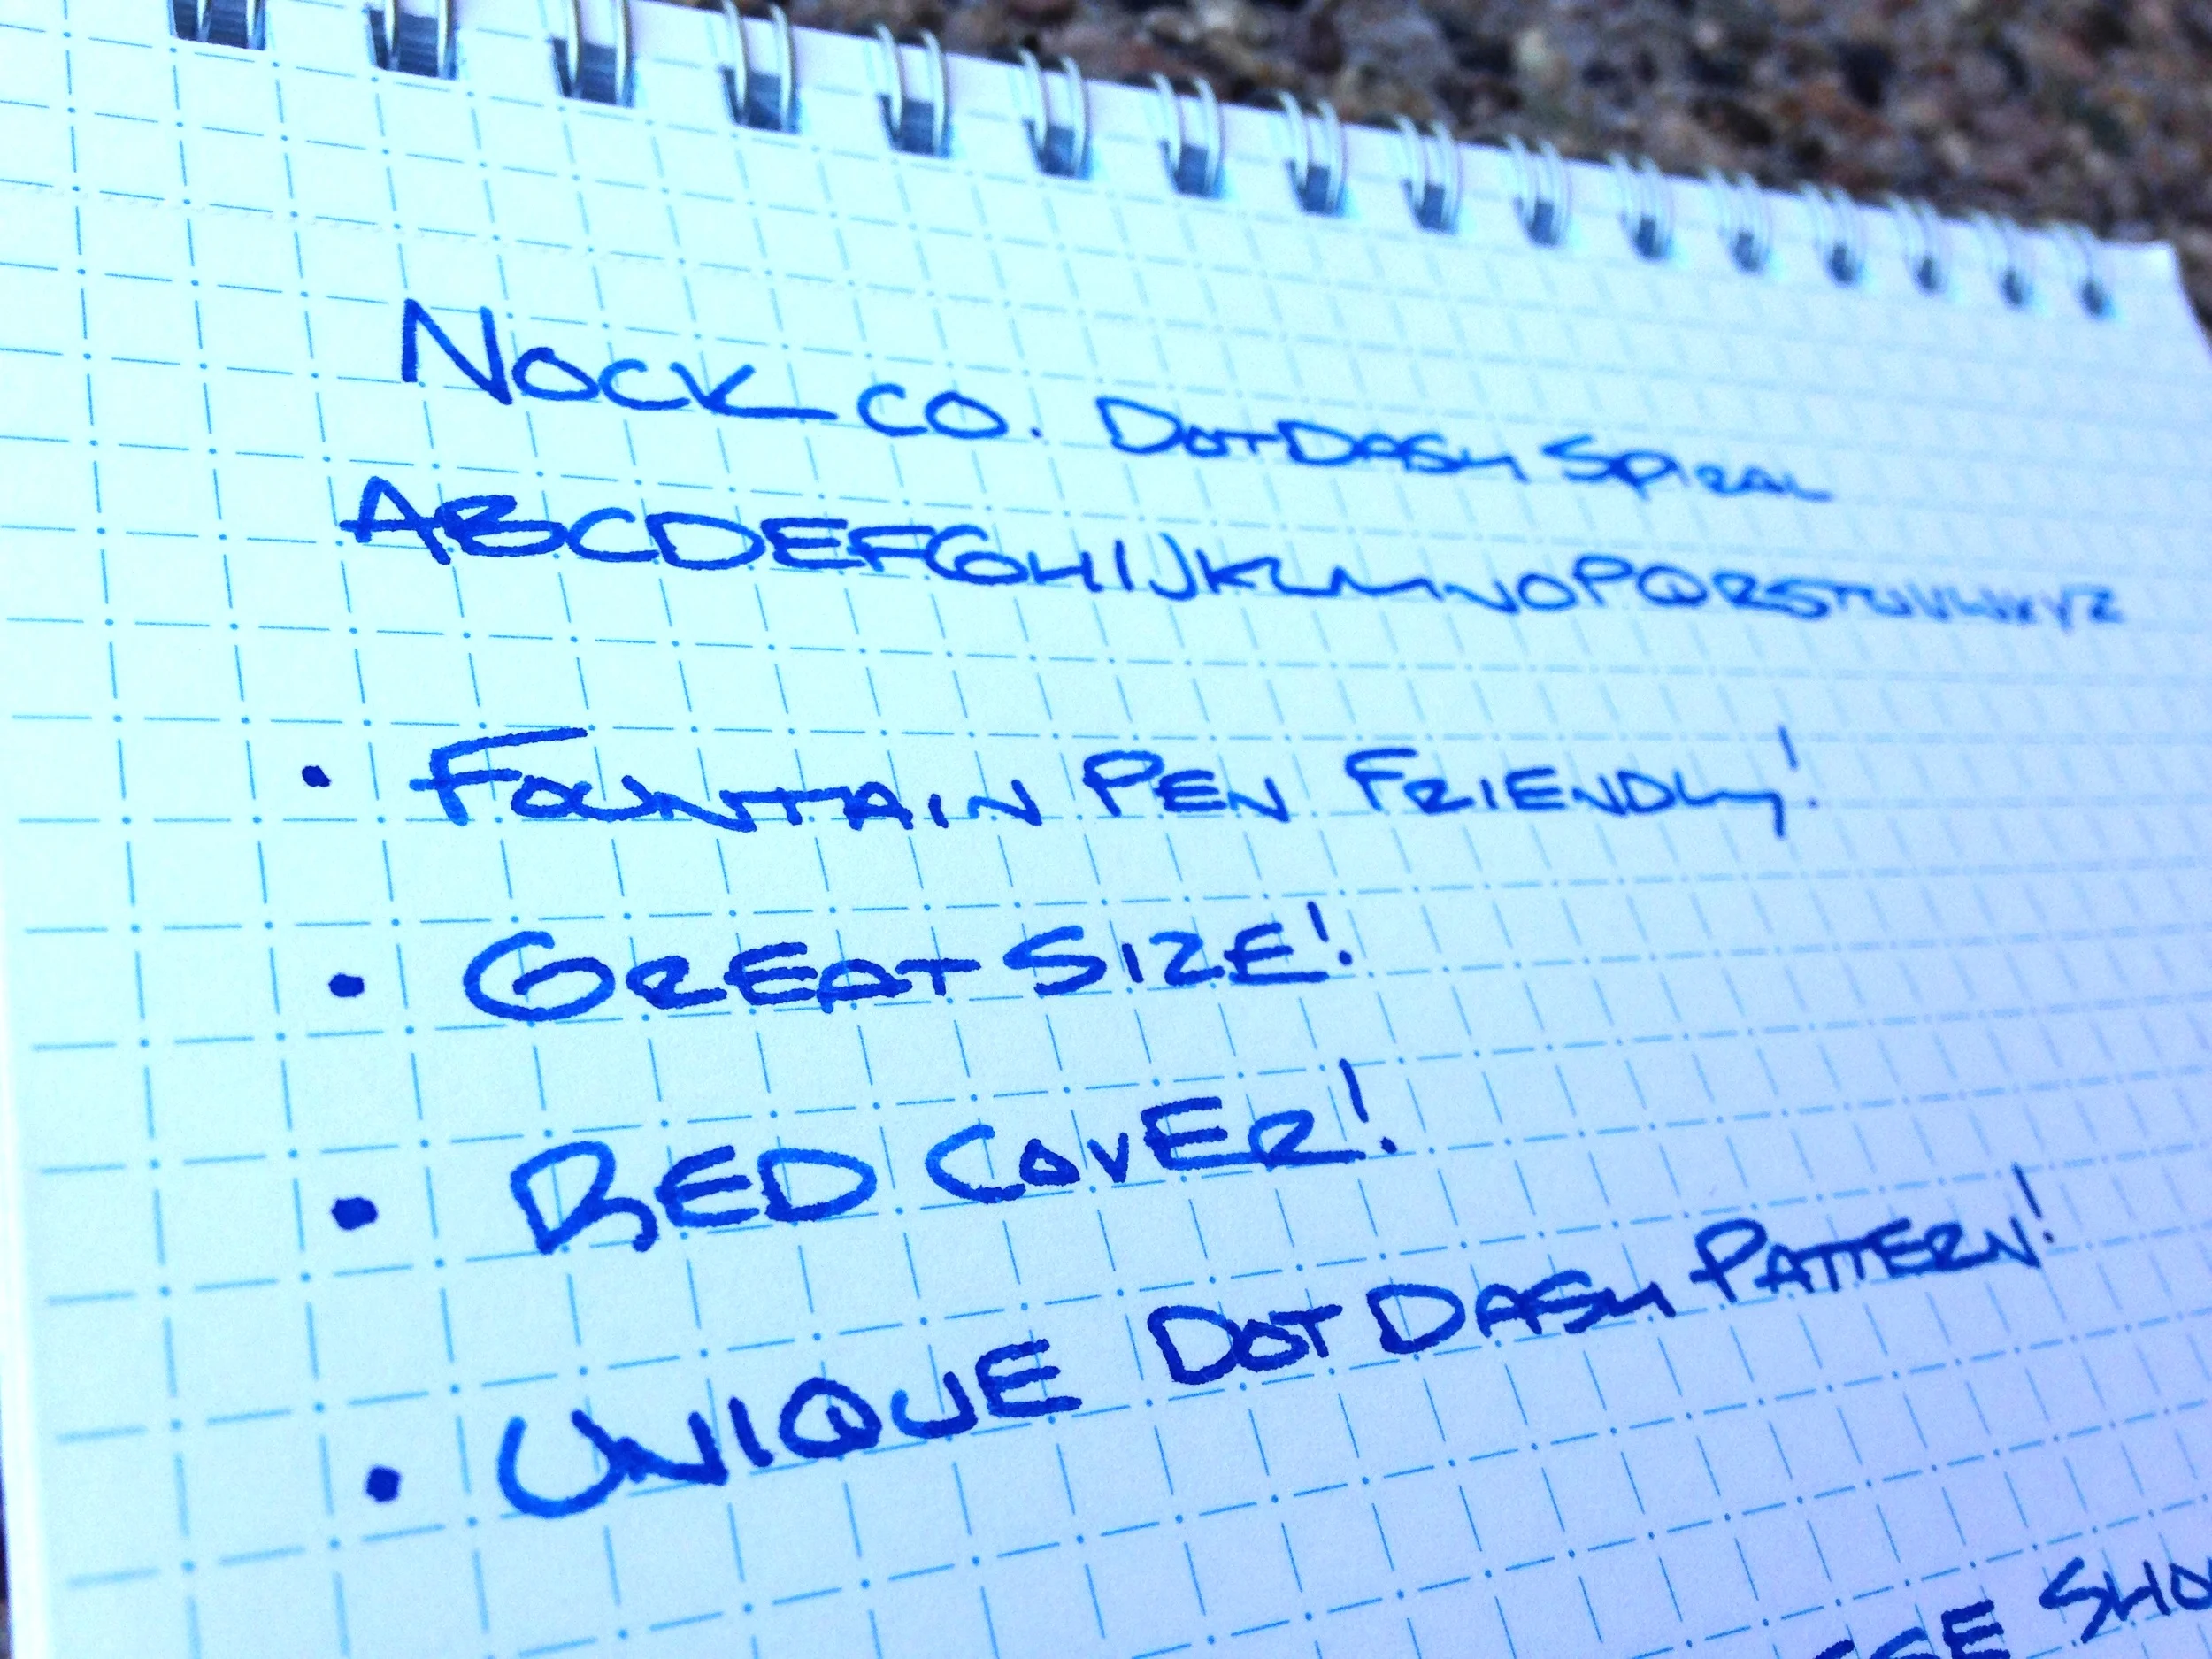 NOCK CO. DOTDASH SPIRAL
ABCDEFGHIJKLMNOPQRSTUVWXYZ
• FOUNTAIN PEN FRIENDLY!
• GREAT SIZE!
• RED COVER!
• UNIQUE DOT DASH PATTERN!